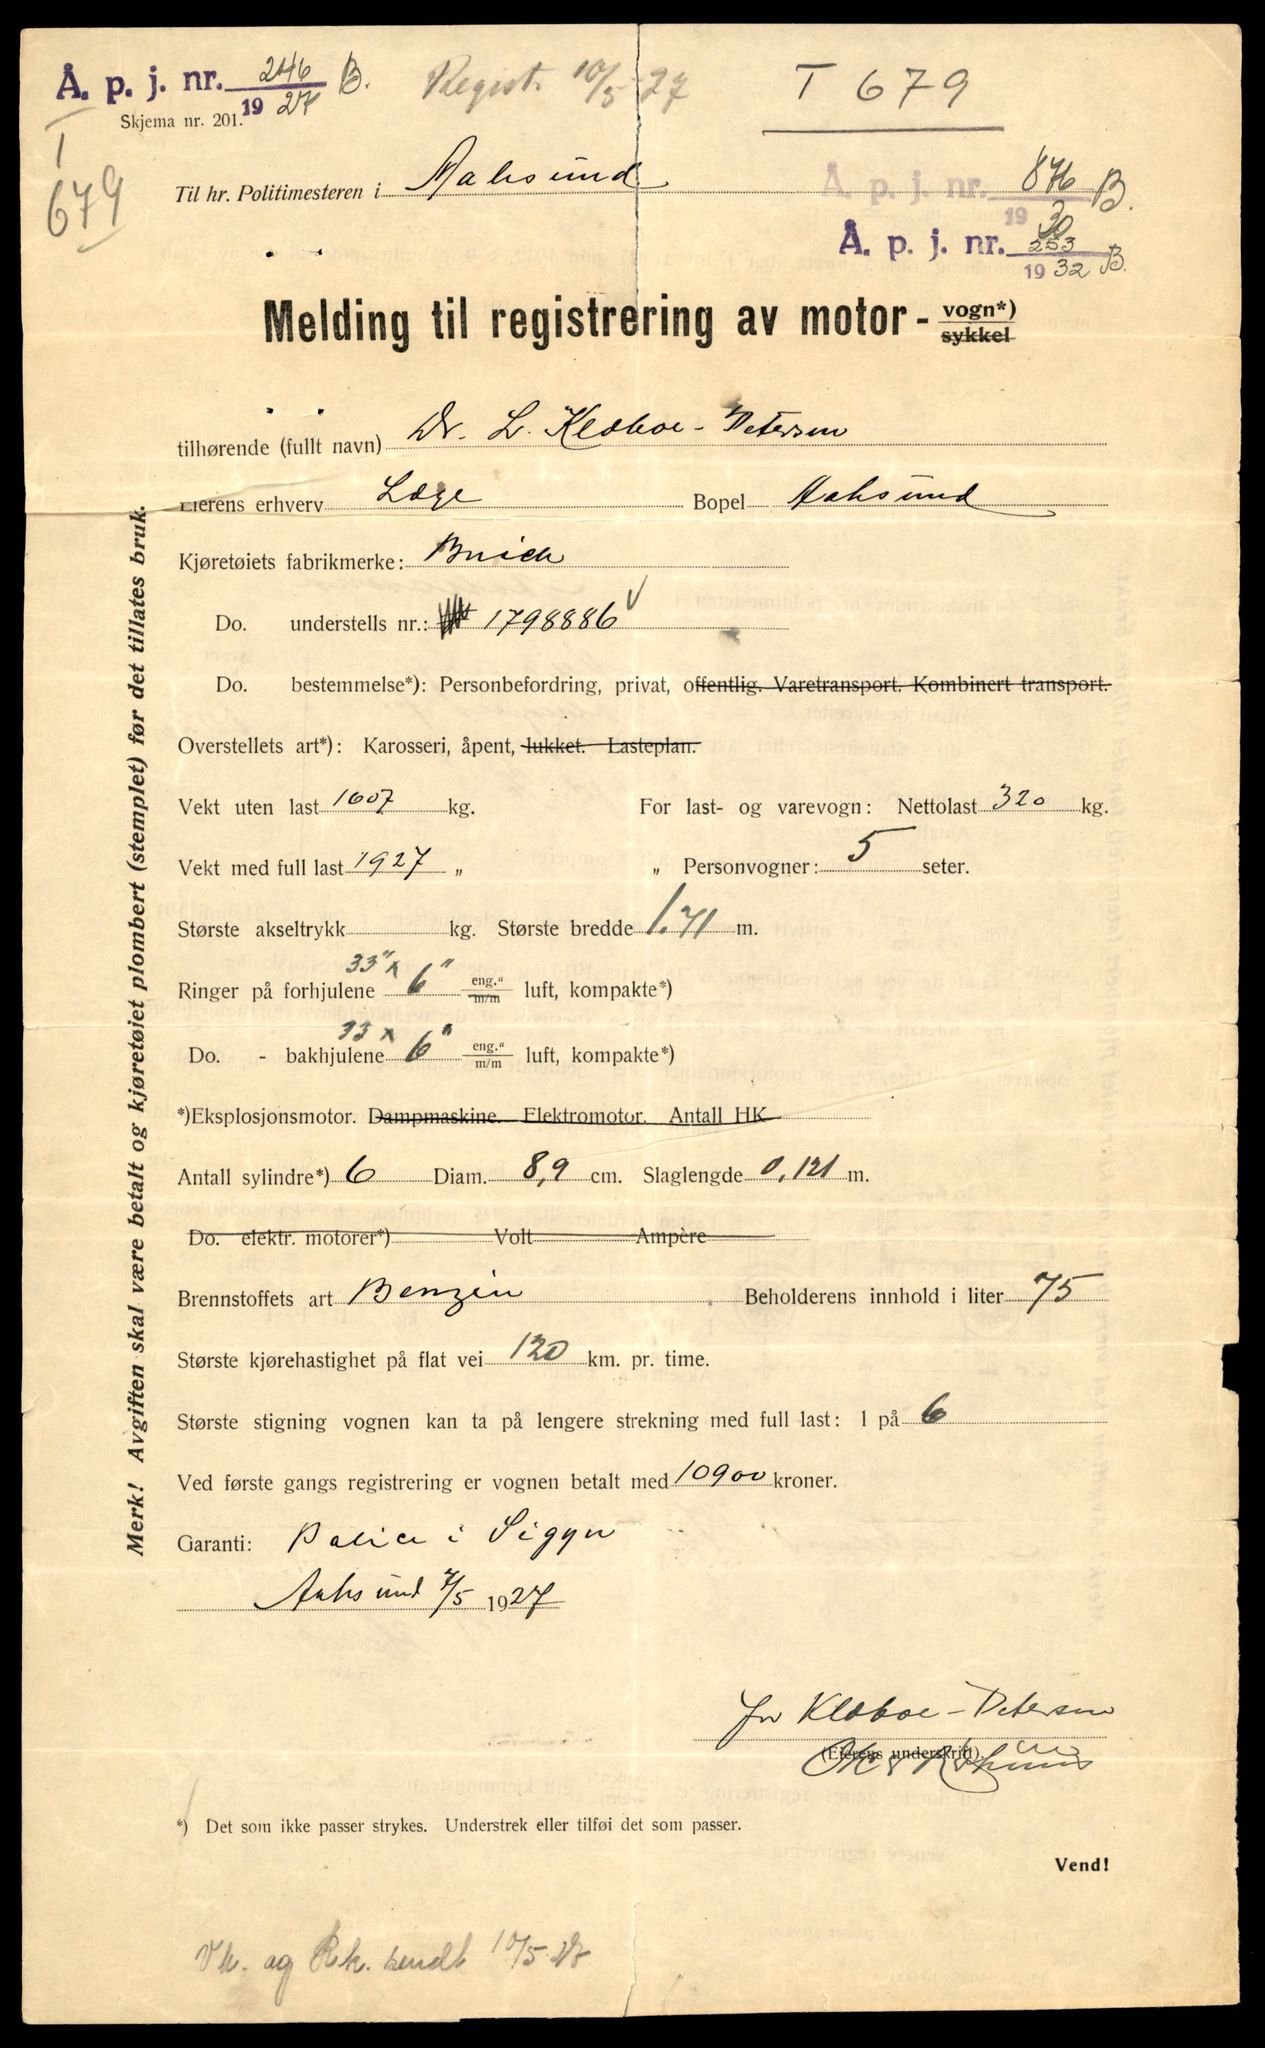 Å. p. j. nr. 246 B.
1927
Skjema nr. 201.
Regist. 10/5 27
T 679
T
679
Til hr. Politimesteren i Aalesund
Å. p. j. nr. 876 B.
1930
Å. p. j. nr. 253 B.
1932
Melding til registrering av motor- vogn*)
sykkel
tilhørende (fullt navn) Dr. L. Klæboe-Petersen
Eierens erhverv Læge Bopel Aalesund
Kjøretøiets fabrikmerke: Buick
Do. understells nr.: 1798886 √
Do. bestemmelse*): Personbefordring, privat, offentlig. Varetransport. Kombinert transport.
Overstellets art*): Karosseri, åpent, lukket. Lasteplan.
Vekt uten last 1607 kg. For last- og varevogn: Nettolast 320 kg.
Vekt med full last 1927 „ „ Personvogner: 5 seter.
Største akseltrykk kg. Største bredde 1.71 m.
Ringer på forhjulene 33" x 6" eng." m/m luft, kompakte*)
Do. - bakhjulene 33 x 6" eng." m/m luft, kompakte*)
*)Eksplosjonsmotor. Dampmaskine. Elektromotor. Antall HK
Antall sylindre*) 6 Diam. 8,9 cm. Slaglengde 0,121 m.
Do. elektr. motorer*) Volt Ampère
Brennstoffets art Benzin Beholderens innhold i liter 75
Største kjørehastighet på flat vei 120 km. pr. time.
Største stigning vognen kan ta på lengere strekning med full last: 1 på 6
Ved første gangs registrering er vognen betalt med 10900 kroner.
Garanti: Police i Sigyn
Aalesund 7/5 1927
for Klæboe-Petersen
(Eierens underskrift).
*) Det som ikke passer strykes. Understrek eller tilføi det som passer.
Vend!
Vk. og Rk. sendt 10/5 27
Merk! Avgiften skal være betalt og kjøretøiet plombert (stemplet) før det tillates bruk.